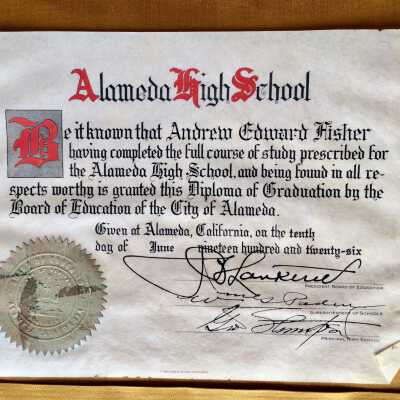 Alameda High School
Be it known that Andrew Edward Fisher
having completed the full course of study prescribed for
the Alameda High School, and being found in all re-
spects worthy is granted this Diploma of Graduation by the
Board of Education of the City of Alameda.
Given at Alameda, California, on the tenth
day of June nineteen hundred and twenty-six
PRESIDENT BOARD OF EDUCATION
SUPERINTENDENT OF SCHOOLS
PRINCIPAL HIGH SCHOOL